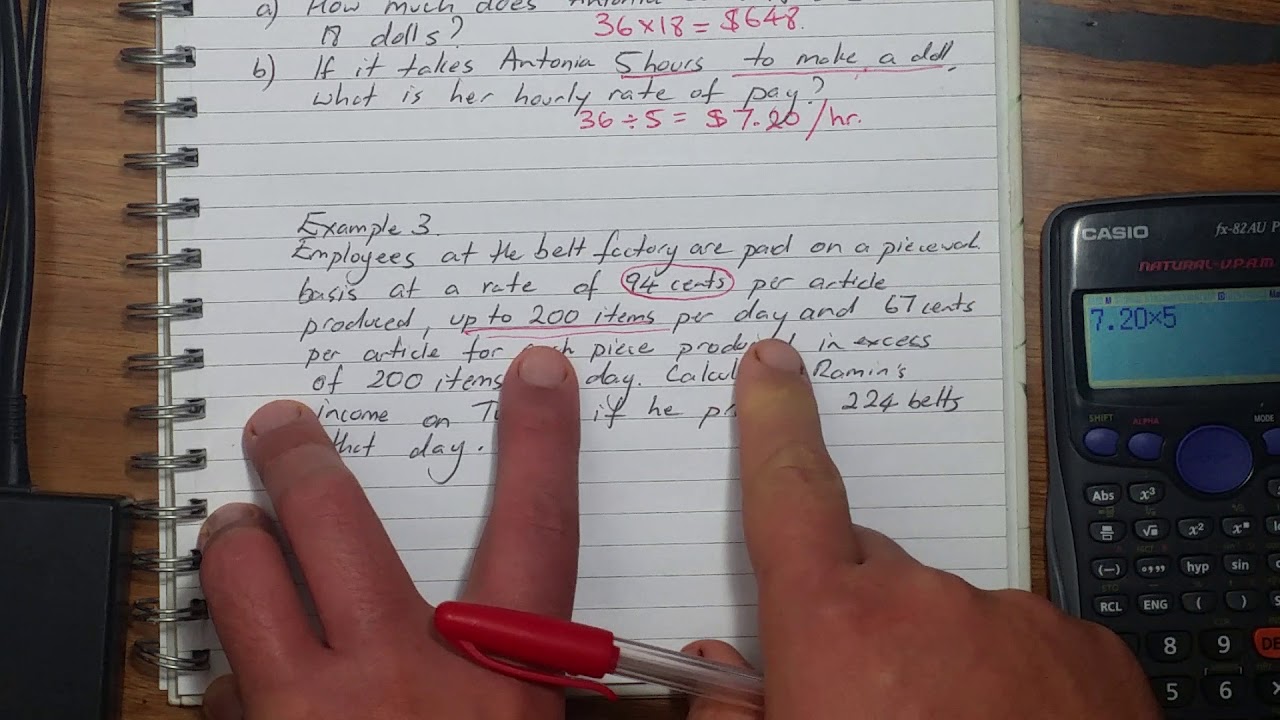 a) How much does Antonia
18 dolls? 36×18 = $648.
b) If it takes Antonia 5 hours to make a doll,
what is her hourly rate of pay?
36÷5 = $7.20/hr.
Example 3.
Employees at the belt factory are paid on a
basis at a rate of 94 cents per article
produced, up to 200 items per day and 67 cents
per article for piece in excess
of 200 items day. Ramin's
income on if he 224 belts
that day.
CASIO fx-82AU P
NATURAL-V.P.A.M
7.20×5
SHIFT ALPHA MODE
Abs x³
√ x² xⁿ
(−) °,,, hyp sin
RCL ENG ( )
8 9 DE
5 6 ×